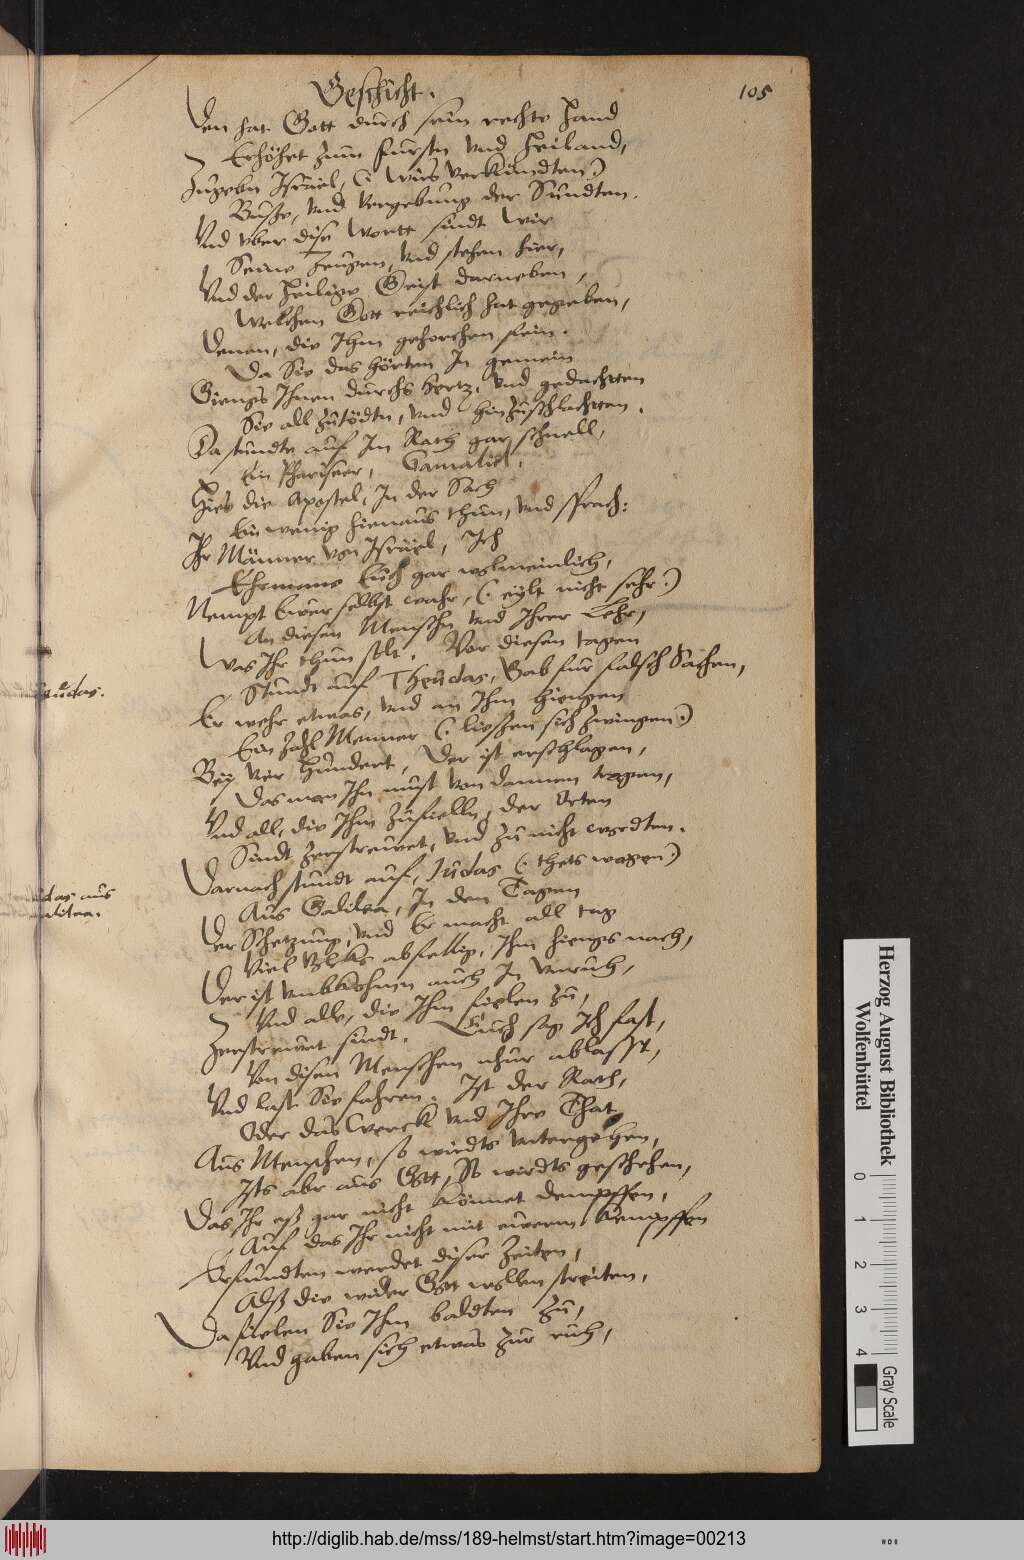 Geschicht.
105
Den hat Gott durch sein rechte Hand
Erhöhet zum fursten vnd Heiland,
Zugebn Israel, (: wirs verkundten:)
Busse, vnd vergebung der Sundten.
Vnd vber dise Wortt sindt Wir
Seine Zeugen, vnd stehen hier,
Vnd der Heilige Geist darneben,
Welchen Gott reichlich hat gegeben,
Denen, die Ihm gehorchen fein.
Da Sie das hörten In gemein
Giengs Ihnen durchs hertz, vnd gedachtten
Sie all zutödtn, vnd hin zuschlachtten.
Da stundte auf Im Rath gar schnell,
Ein Phariseer, Gamaliel,
Hies die Apostel, In der Sach
Ein wenig hienaus thun, vnd sprach:
Ihr Männer von Israel, Ich
Ehrmane Euch gar wolmeinlich,
Nempt Ewer selbst wahr, (: eylt nicht sehr:)
An diesen Menschn vnd Ihrer Lehr,
Was Ihr thun solt. Vor diesen tagen
Stundt auf Theudas, Gab fur falsch Sachen,
Theudas.
Er wehr etwas, vnd an Ihm hiengen
Ein Zahl Menner (: liessen sich zwingen:)
Bey vier Hundert, Der ist erschlagen,
Das man Ihn must von dannen tragen,
Vnd all, die Ihm zufielln, der Orten
Sindt zerstreuwet, vnd zu nicht wordten.
Darnach stundt auf, Judas (: thets wagen:)
Aus Galilea, In den Tagen
Judas aus
Galilea.
Der Schetzung, vnd Er macht all tag
Viel Volks abfellig, Ihm hiengs nach,
Der ist vmbkohmen auch In vnruh,
Vnd alle, die Ihm fielen zu,
Zerstreuwet sindt. Euch sag Ich fast,
Von disen Menschen nhur ablasst,
Vnd last Sie fahren. Ist der Rath,
Oder das Werck vnd Ihre That
Aus Menschen, so wirdts vntergehen,
Ists abr aus Gott, So wirdts geschehen,
Das Ihr eß gar nicht könnet dempffen,
Auf das Ihr nicht mit euwerm kempffen
Erfundten werdet diser Zeiten,
Alß die wider Gott wollen streiten,
Da fielen Sie Ihm baldten zu,
Vnd gaben sich etwas zur ruh,
Herzog August Bibliothek
Wolfenbüttel
0 1 2 3 4
Gray Scale
http://diglib.hab.de/mss/189-helmst/start.htm?image=00213